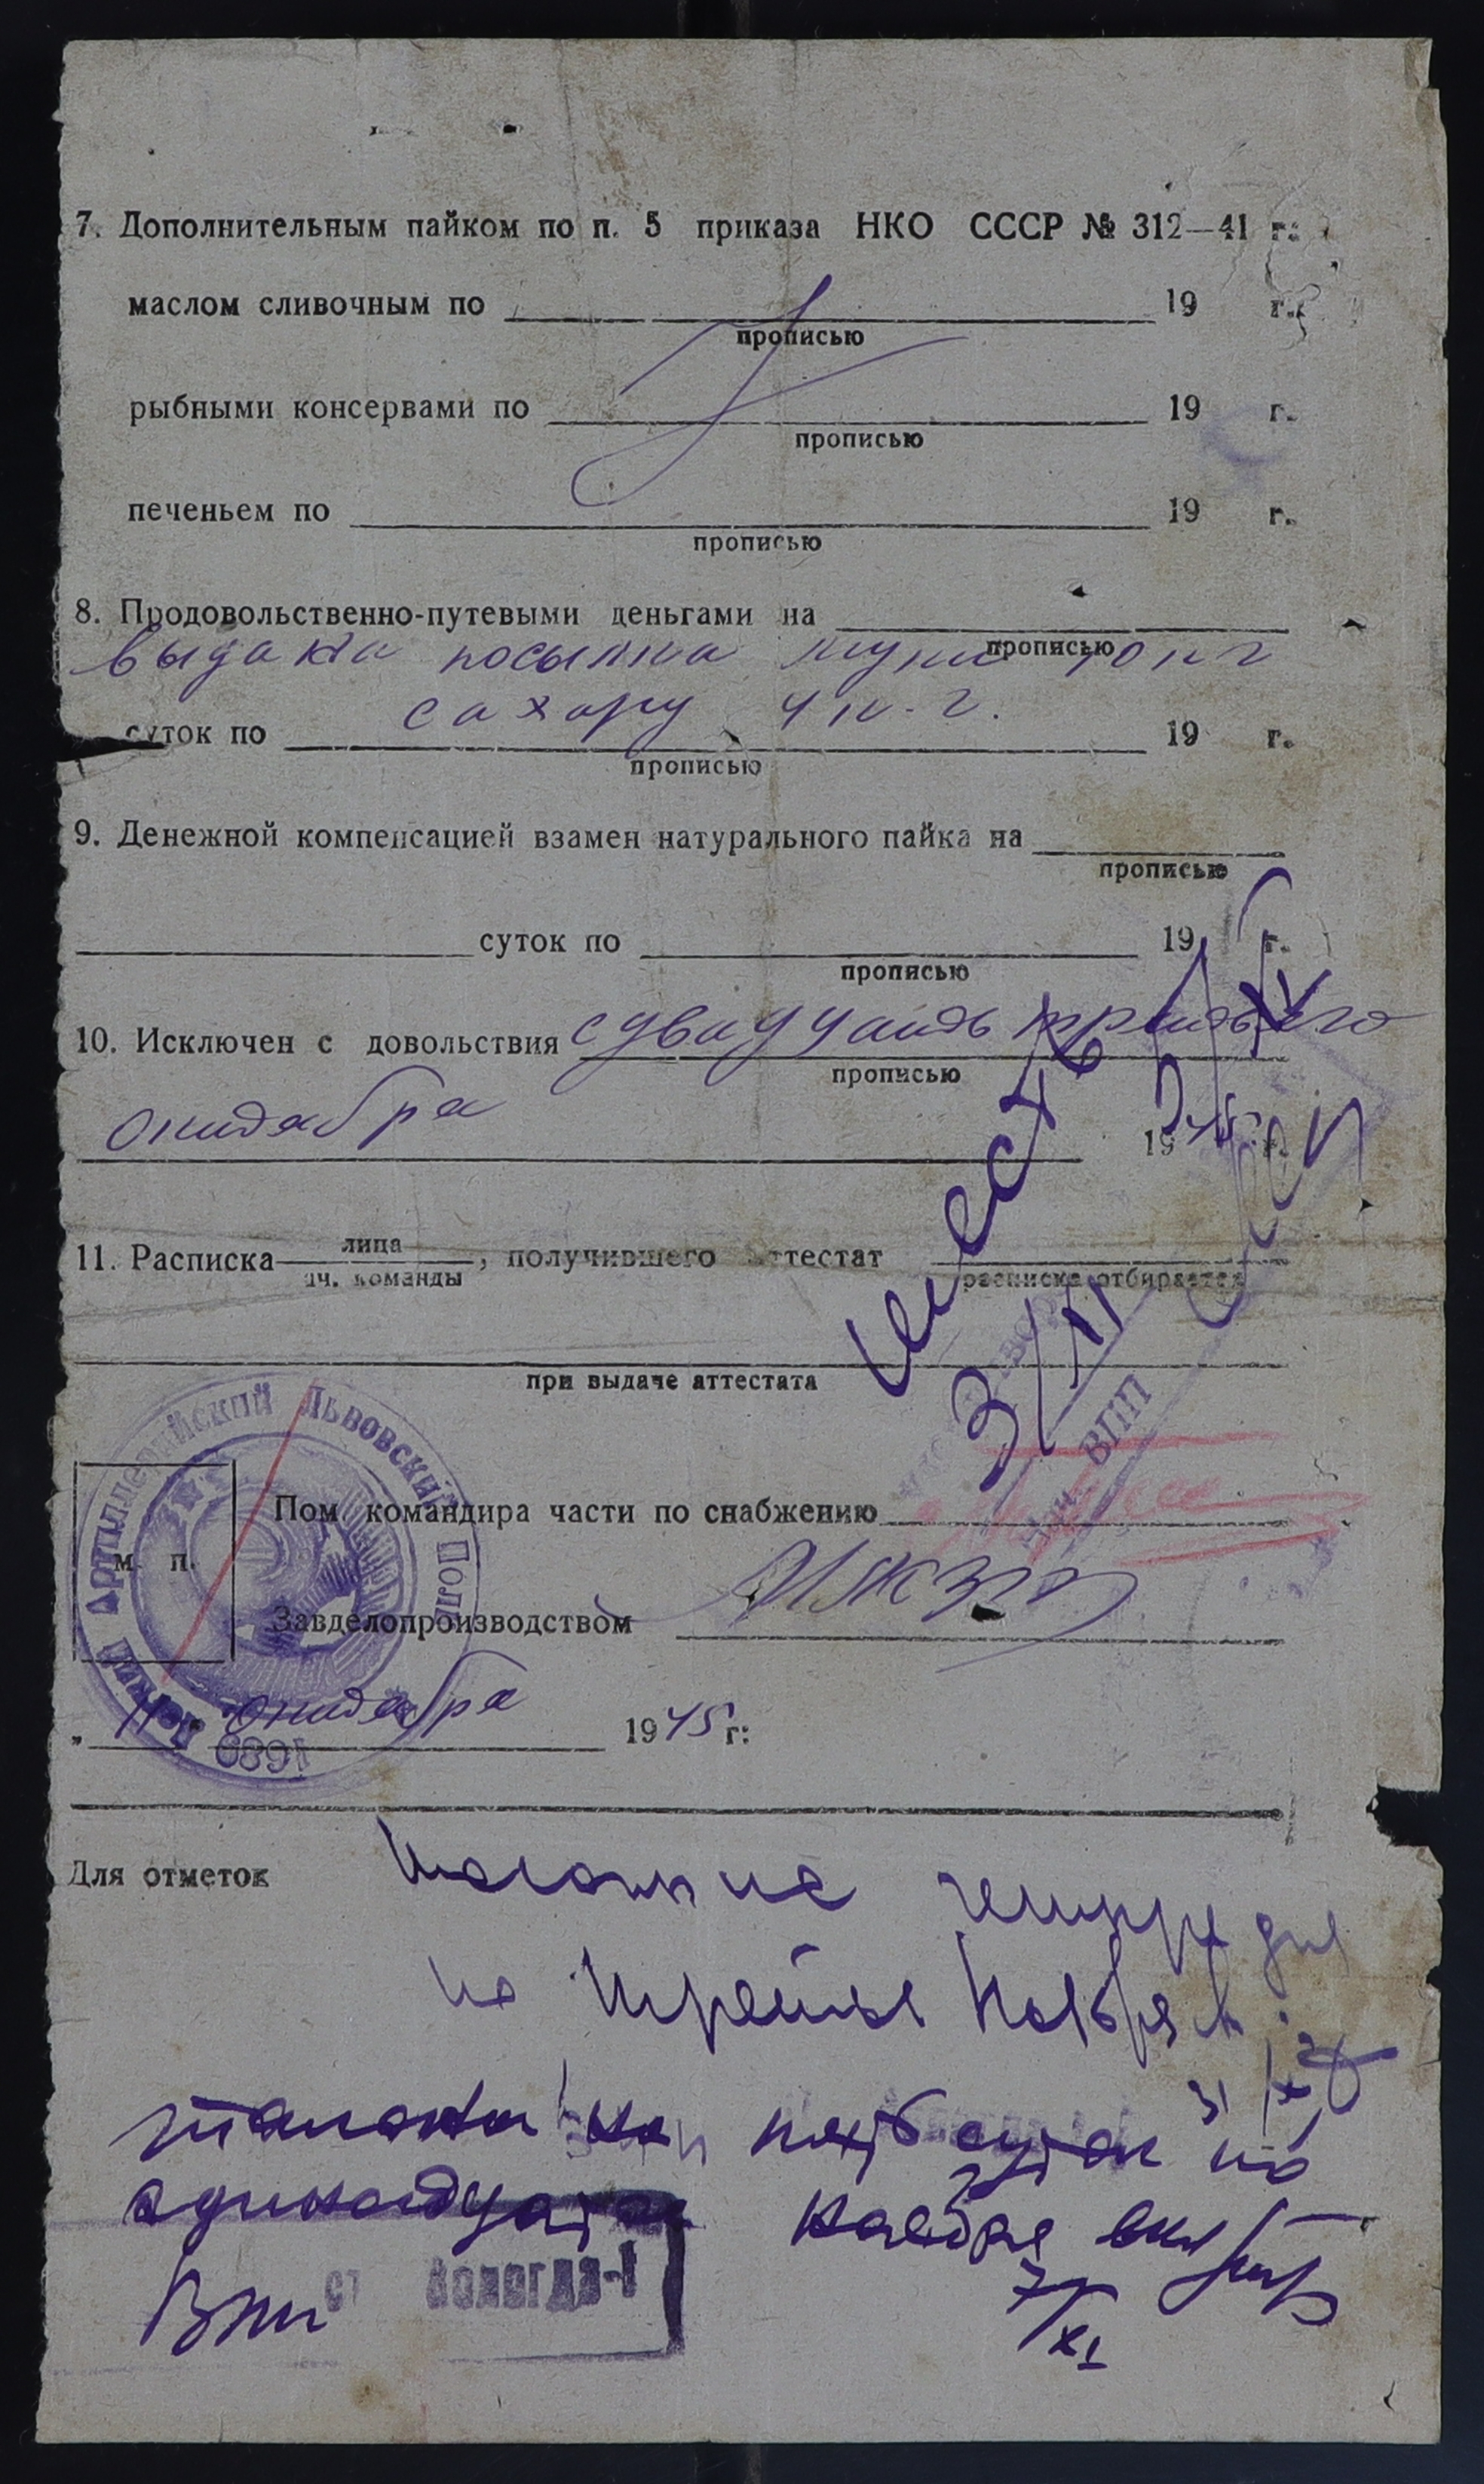 7. Дополнительным пайком по п. 5 приказа НКО СССР № 312—41 г:
маслом сливочным по 19 г.
прописью
рыбными консервами по 19 г.
прописью
печеньем по 19 г.
прописью
8. Продовольственно-путевыми деньгами на
прописью
выдана посылка муки 10 кг
сахару 4 к-г.
суток по 19 г.
прописью
9. Денежной компенсацией взамен натурального пайка на
прописью
суток по 19 г.
прописью
10. Исключен с довольствия с двадцать третьего
прописью
октября 1945 г.
11. Расписка лица , получившего аттестат
нач. команды расписка отбирается
при выдаче аттестата
шесть
3/XI
ВПП
Артиллерийский Львовский Полк
1689
Пом. командира части по снабжению
м. п.
Завделопроизводством
11 октября 1945 г:
Для отметок
Талоны на четыре дня
по третье ноября
31/X
талоны на пять суток по
одинадцатое ноября вкл
7/XI
ВПП
ст Вологда-1